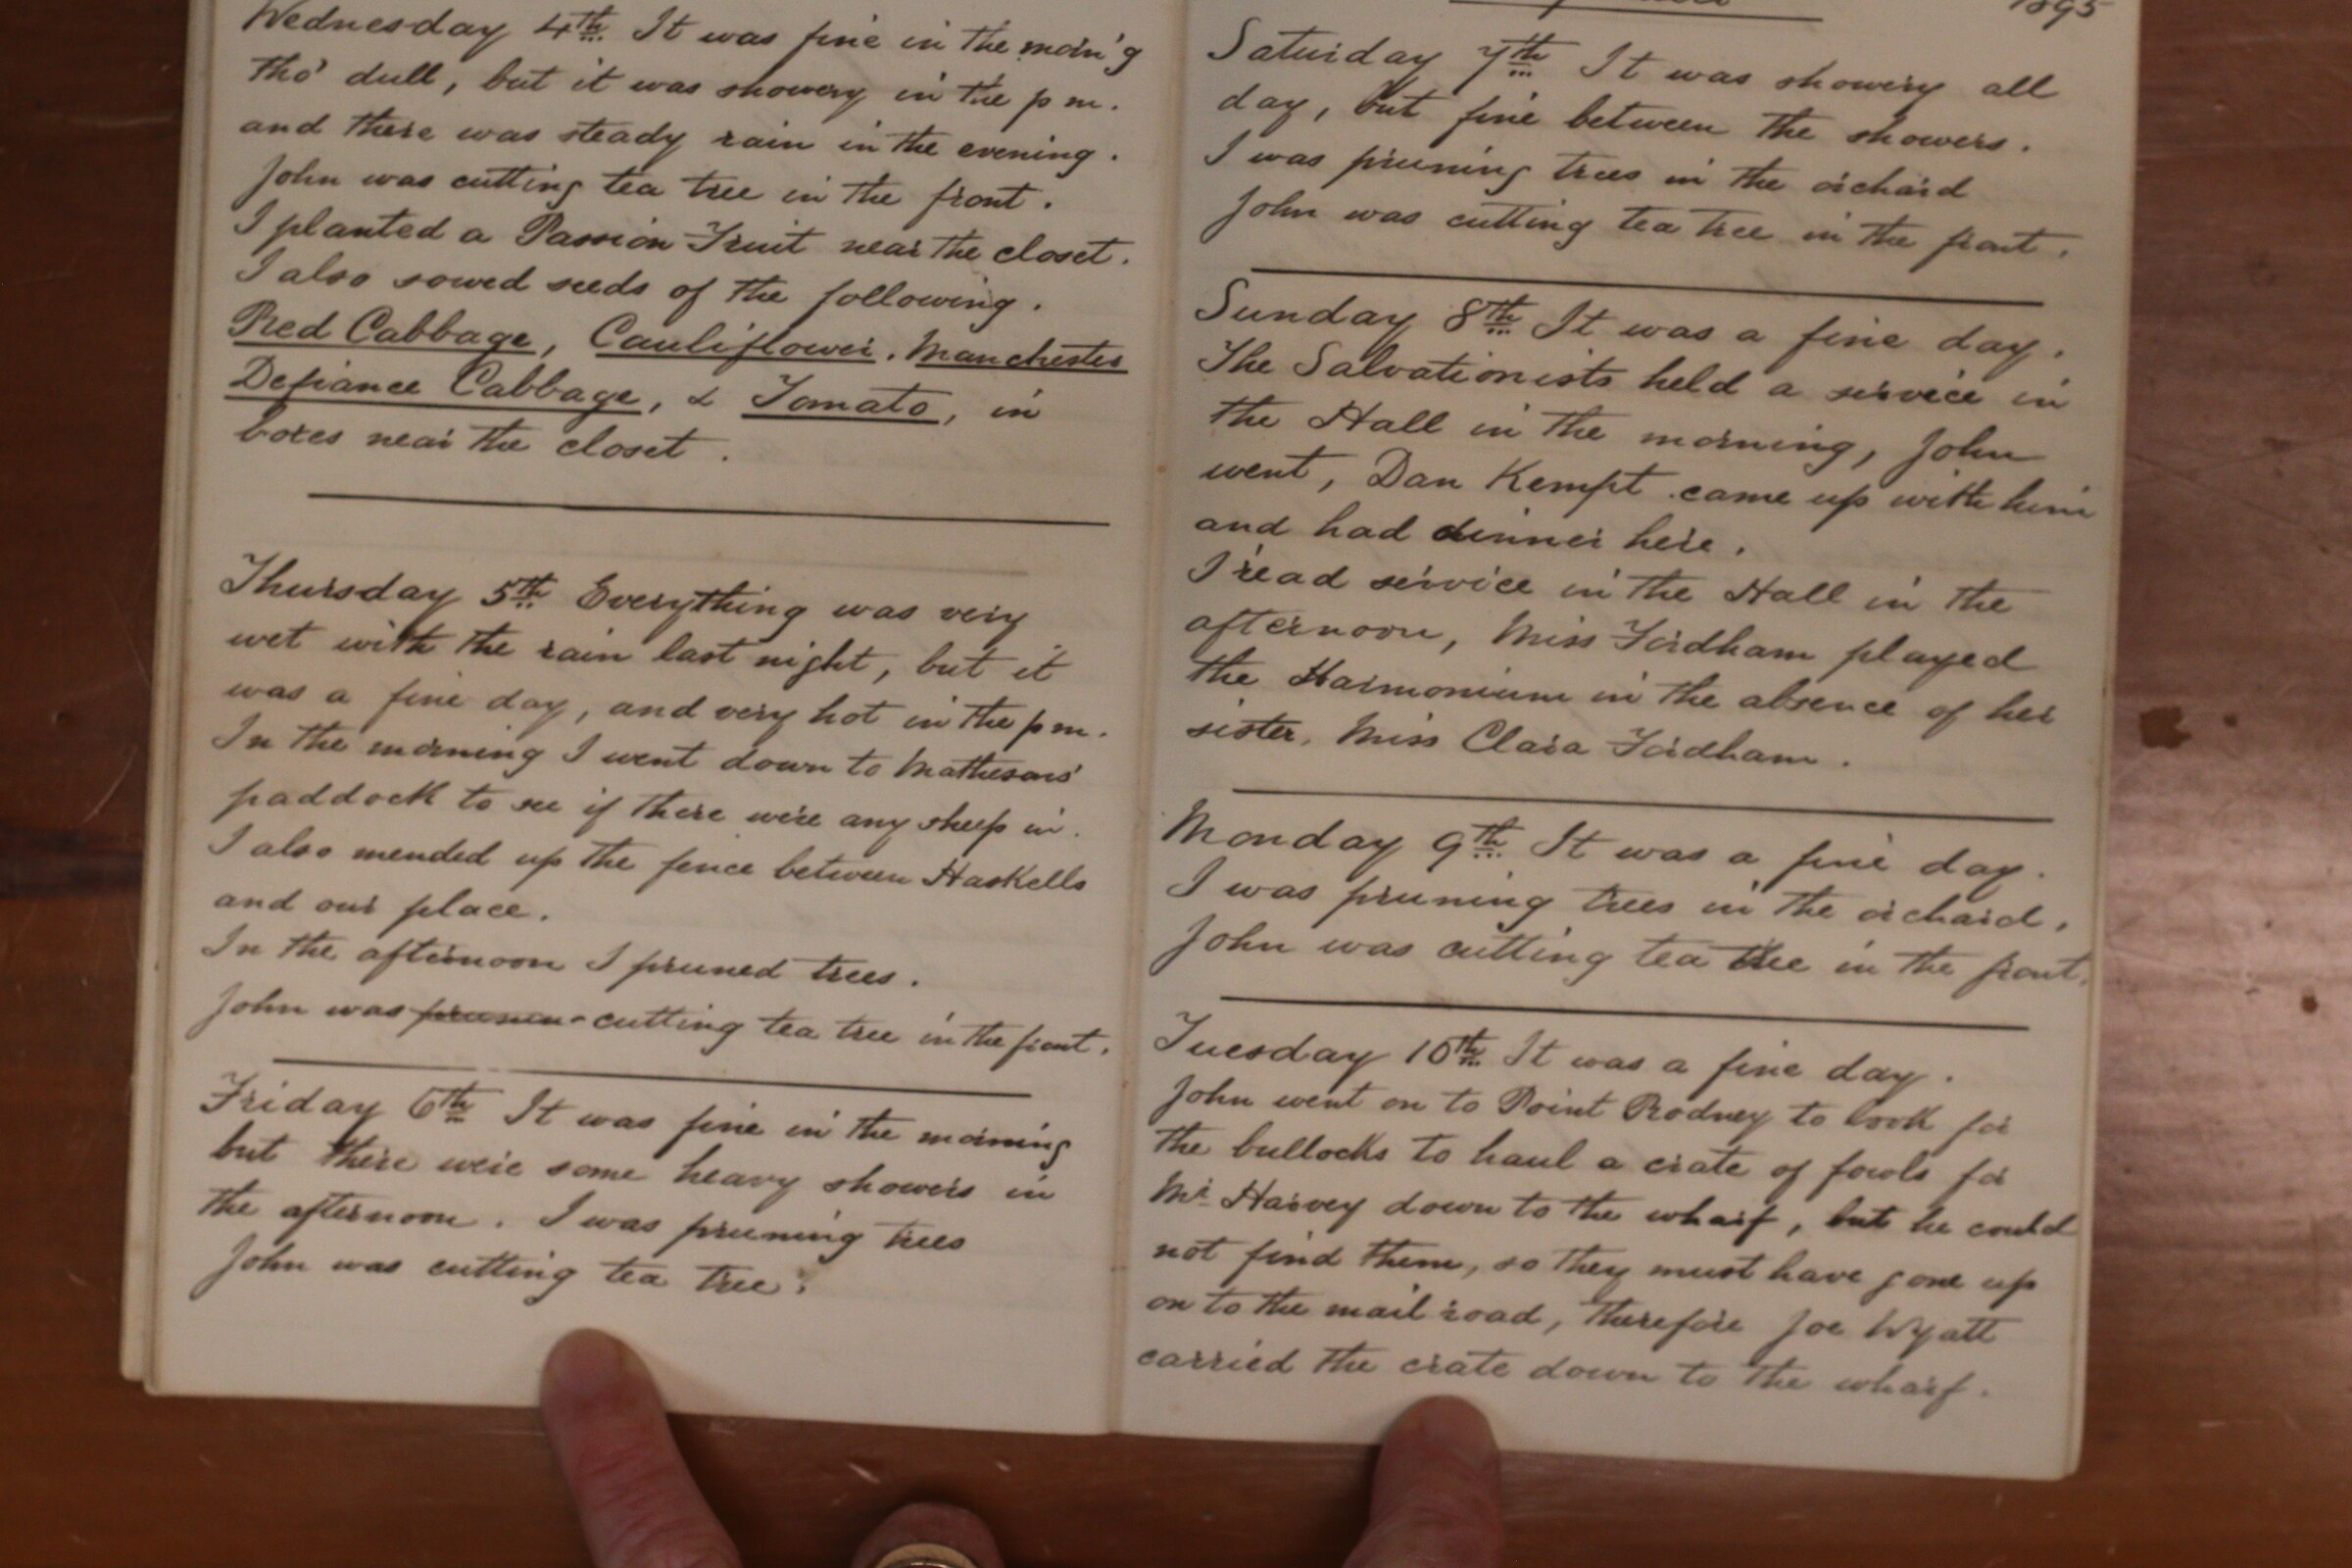 Wednesday 4th It was fine in the morn'g
tho' dull, but it was showery in the p m.
and there was steady rain in the evening.
John was cutting tea tree in the front.
I planted a Passion Fruit near the closet.
I also sowed seeds of the following.
Red Cabbage, Cauliflower, Manchester
Defiance Cabbage, & Tomato, in
boxes near the closet.
Thursday 5th Everything was very
wet with the rain last night, but it
was a fine day, and very hot in the p m.
In the morning I went down to Mathesons'
paddock to see if there were any sheep in.
I also mended up the fence between Haskells
and our place.
In the afternoon I pruned trees.
John was prunin cutting tea tree in the front.
Friday 6th It was fine in the morning
but there were some heavy showers in
the afternoon. I was pruning trees
John was cutting tea tree.
1895
Saturday 7th It was showery all
day, but fine between the showers.
I was pruning trees in the orchard
John was cutting tea tree in the front.
Sunday 8th It was a fine day.
The Salvationists held a service in
the Hall in the morning, John
went, Dan Kempt came up with him
and had dinner here.
I read service in the Hall in the
afternoon, Miss Fordham played
the Harmonium in the absence of her
sister, Miss Clara Fordham.
Monday 9th It was a fine day.
I was pruning trees in the orchard.
John was cutting tea tree in the front.
Tuesday 10th It was a fine day.
John went on to Point Rodney to look for
the bullocks to haul a crate of fowls for
Mr Harvey down to the wharf, but he could
not find them, so they must have gone up
on to the mail road, therefore Joe Wyatt
carried the crate down to the wharf.